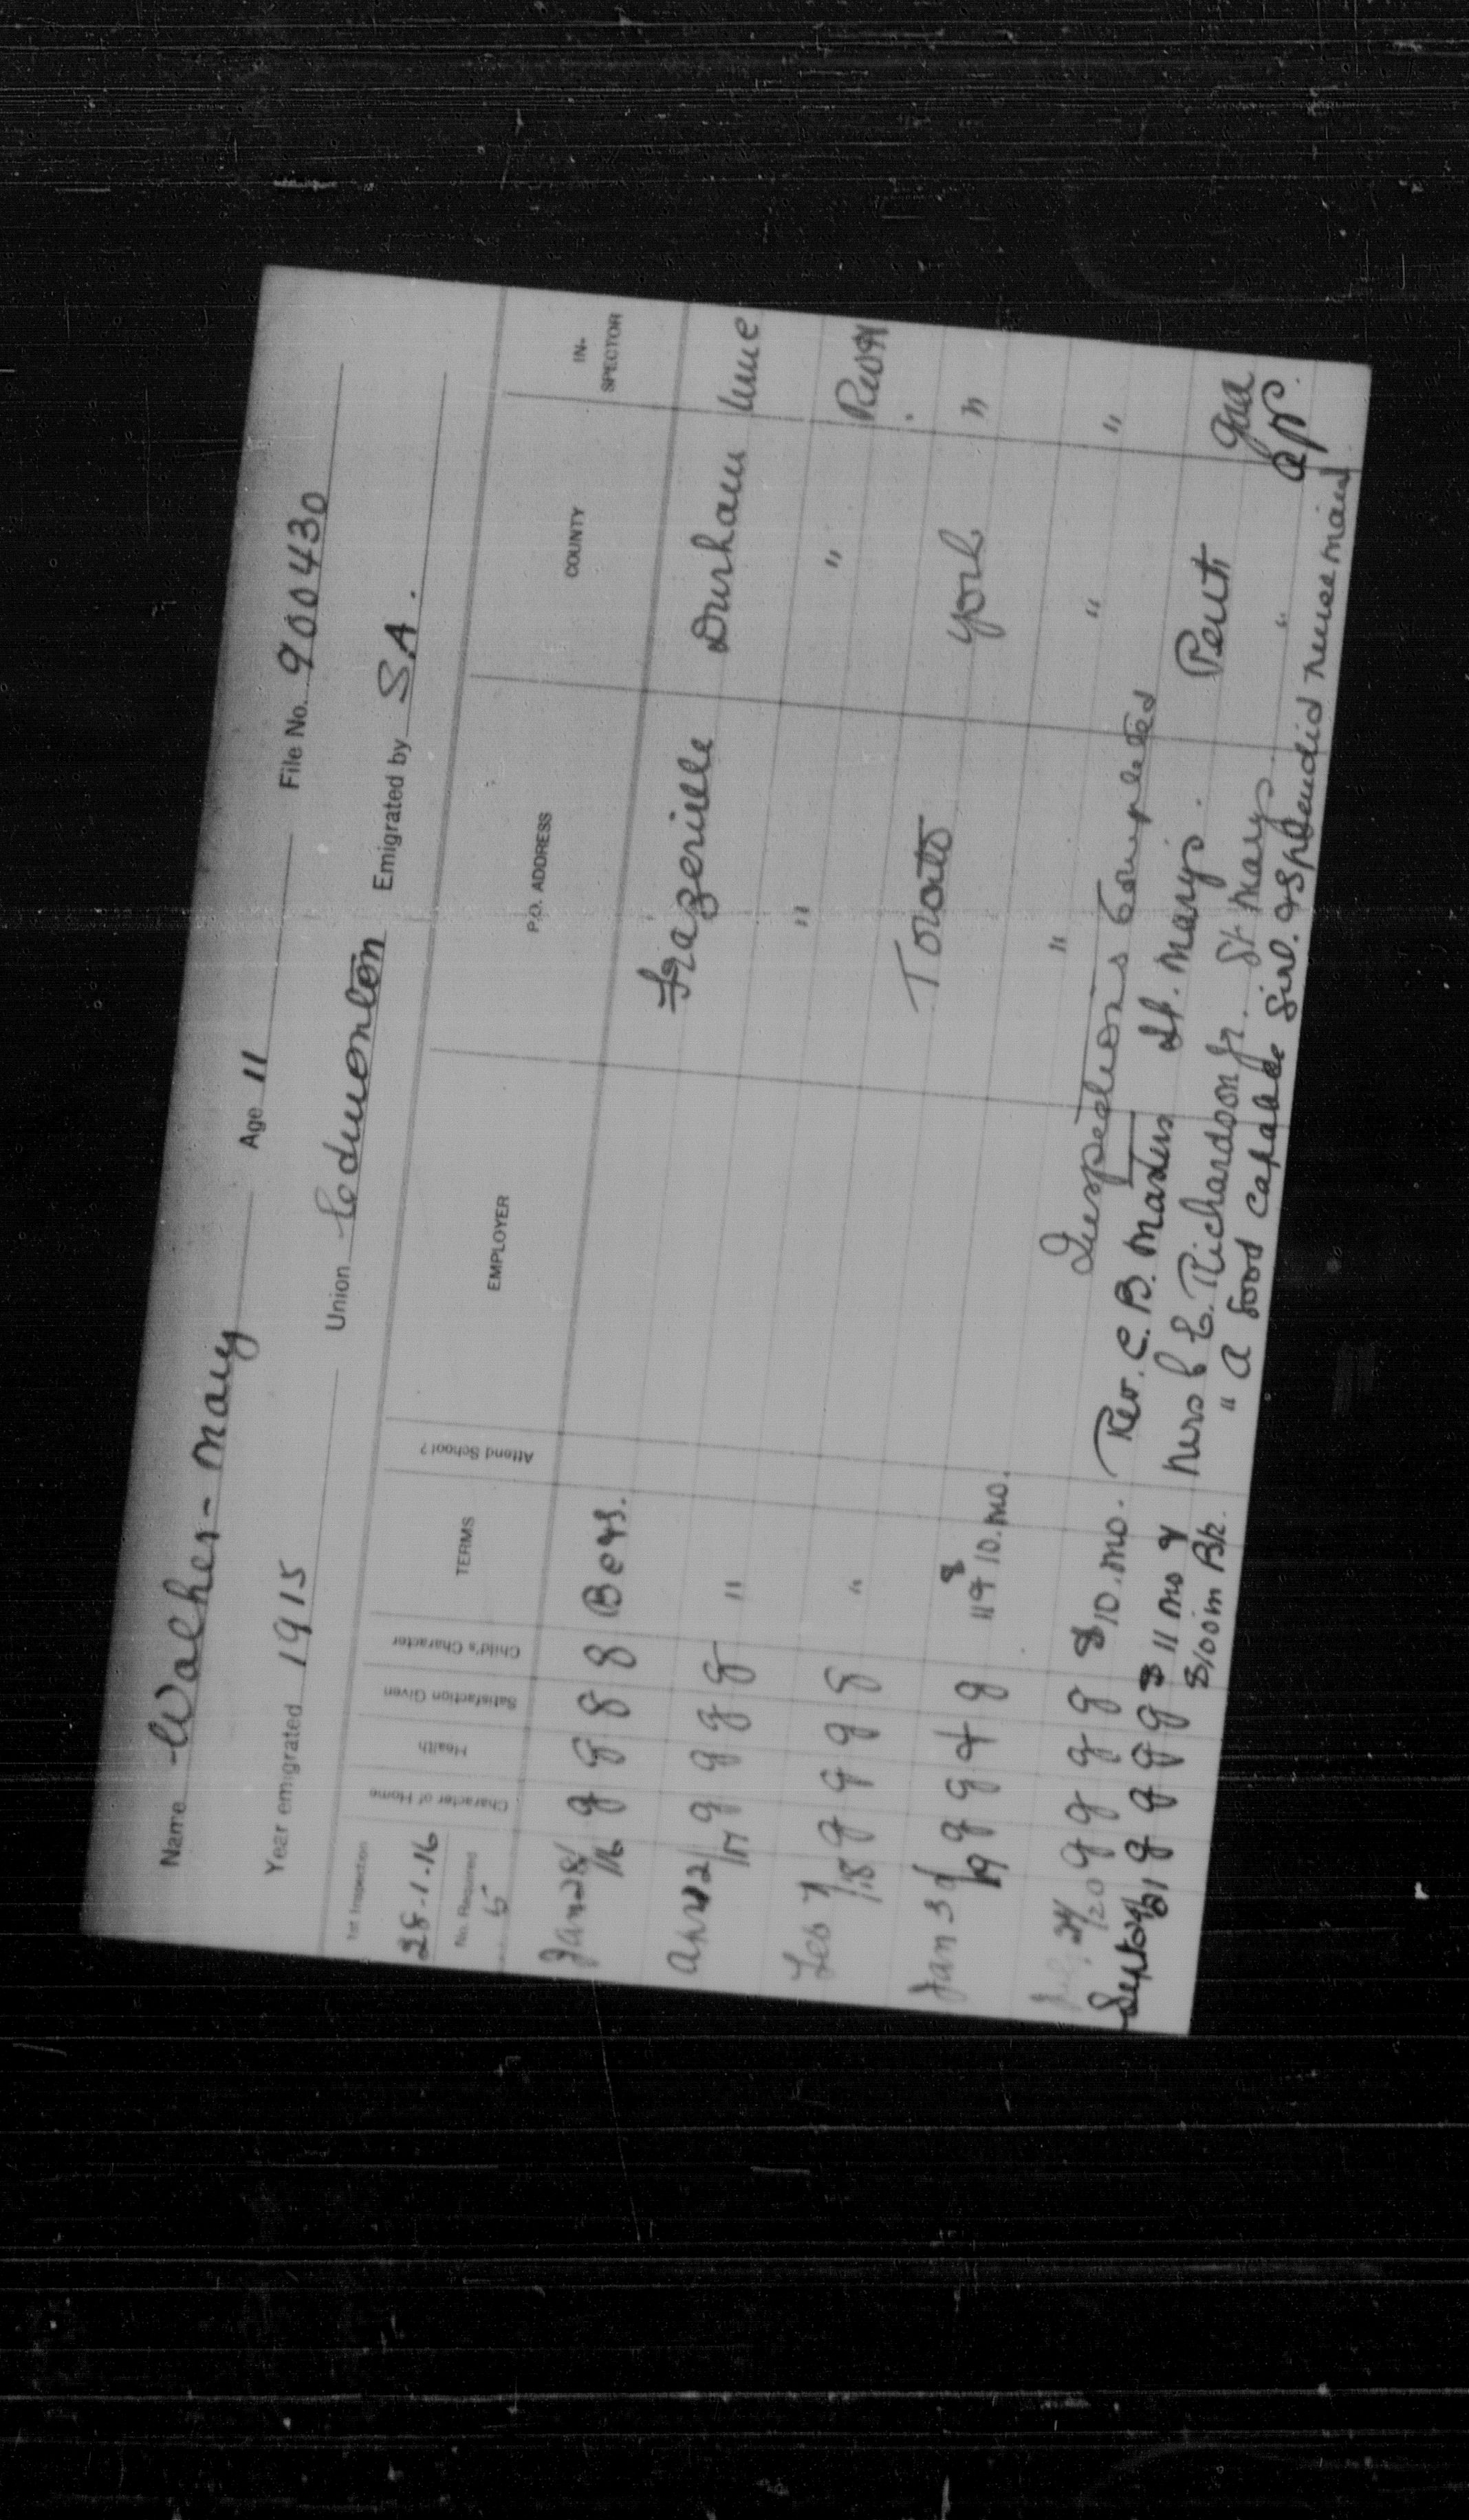 Name Walker - Mary Age 11 File No. 900430
Year emigrated 1915 Union Edmonton Emigrated by S.A.
1st Inspection
28-1-16
No. Required
5
Character of Home Health Satisfaction Given Child's Character TERMS Attend School? EMPLOYER P.O. ADDRESS COUNTY IN-SPECTOR
Jan 28/16 g g g g B & S. Frazerville Durham
Apr 12/17 g g g g " " "
Feb 7/18 g g g g "
Jan 30/19 g g g 10. mo. Toronto York "
24/20 g g g g $10. mo. " " "
Inspections Completed
Sept 21 g g g g $11 mo & Rev. C. B. St. Marys. Perth
$100 in Bk. Mrs C E. Richardson Jr. St Marys "
" A good capable girl. A splendid nurse maid